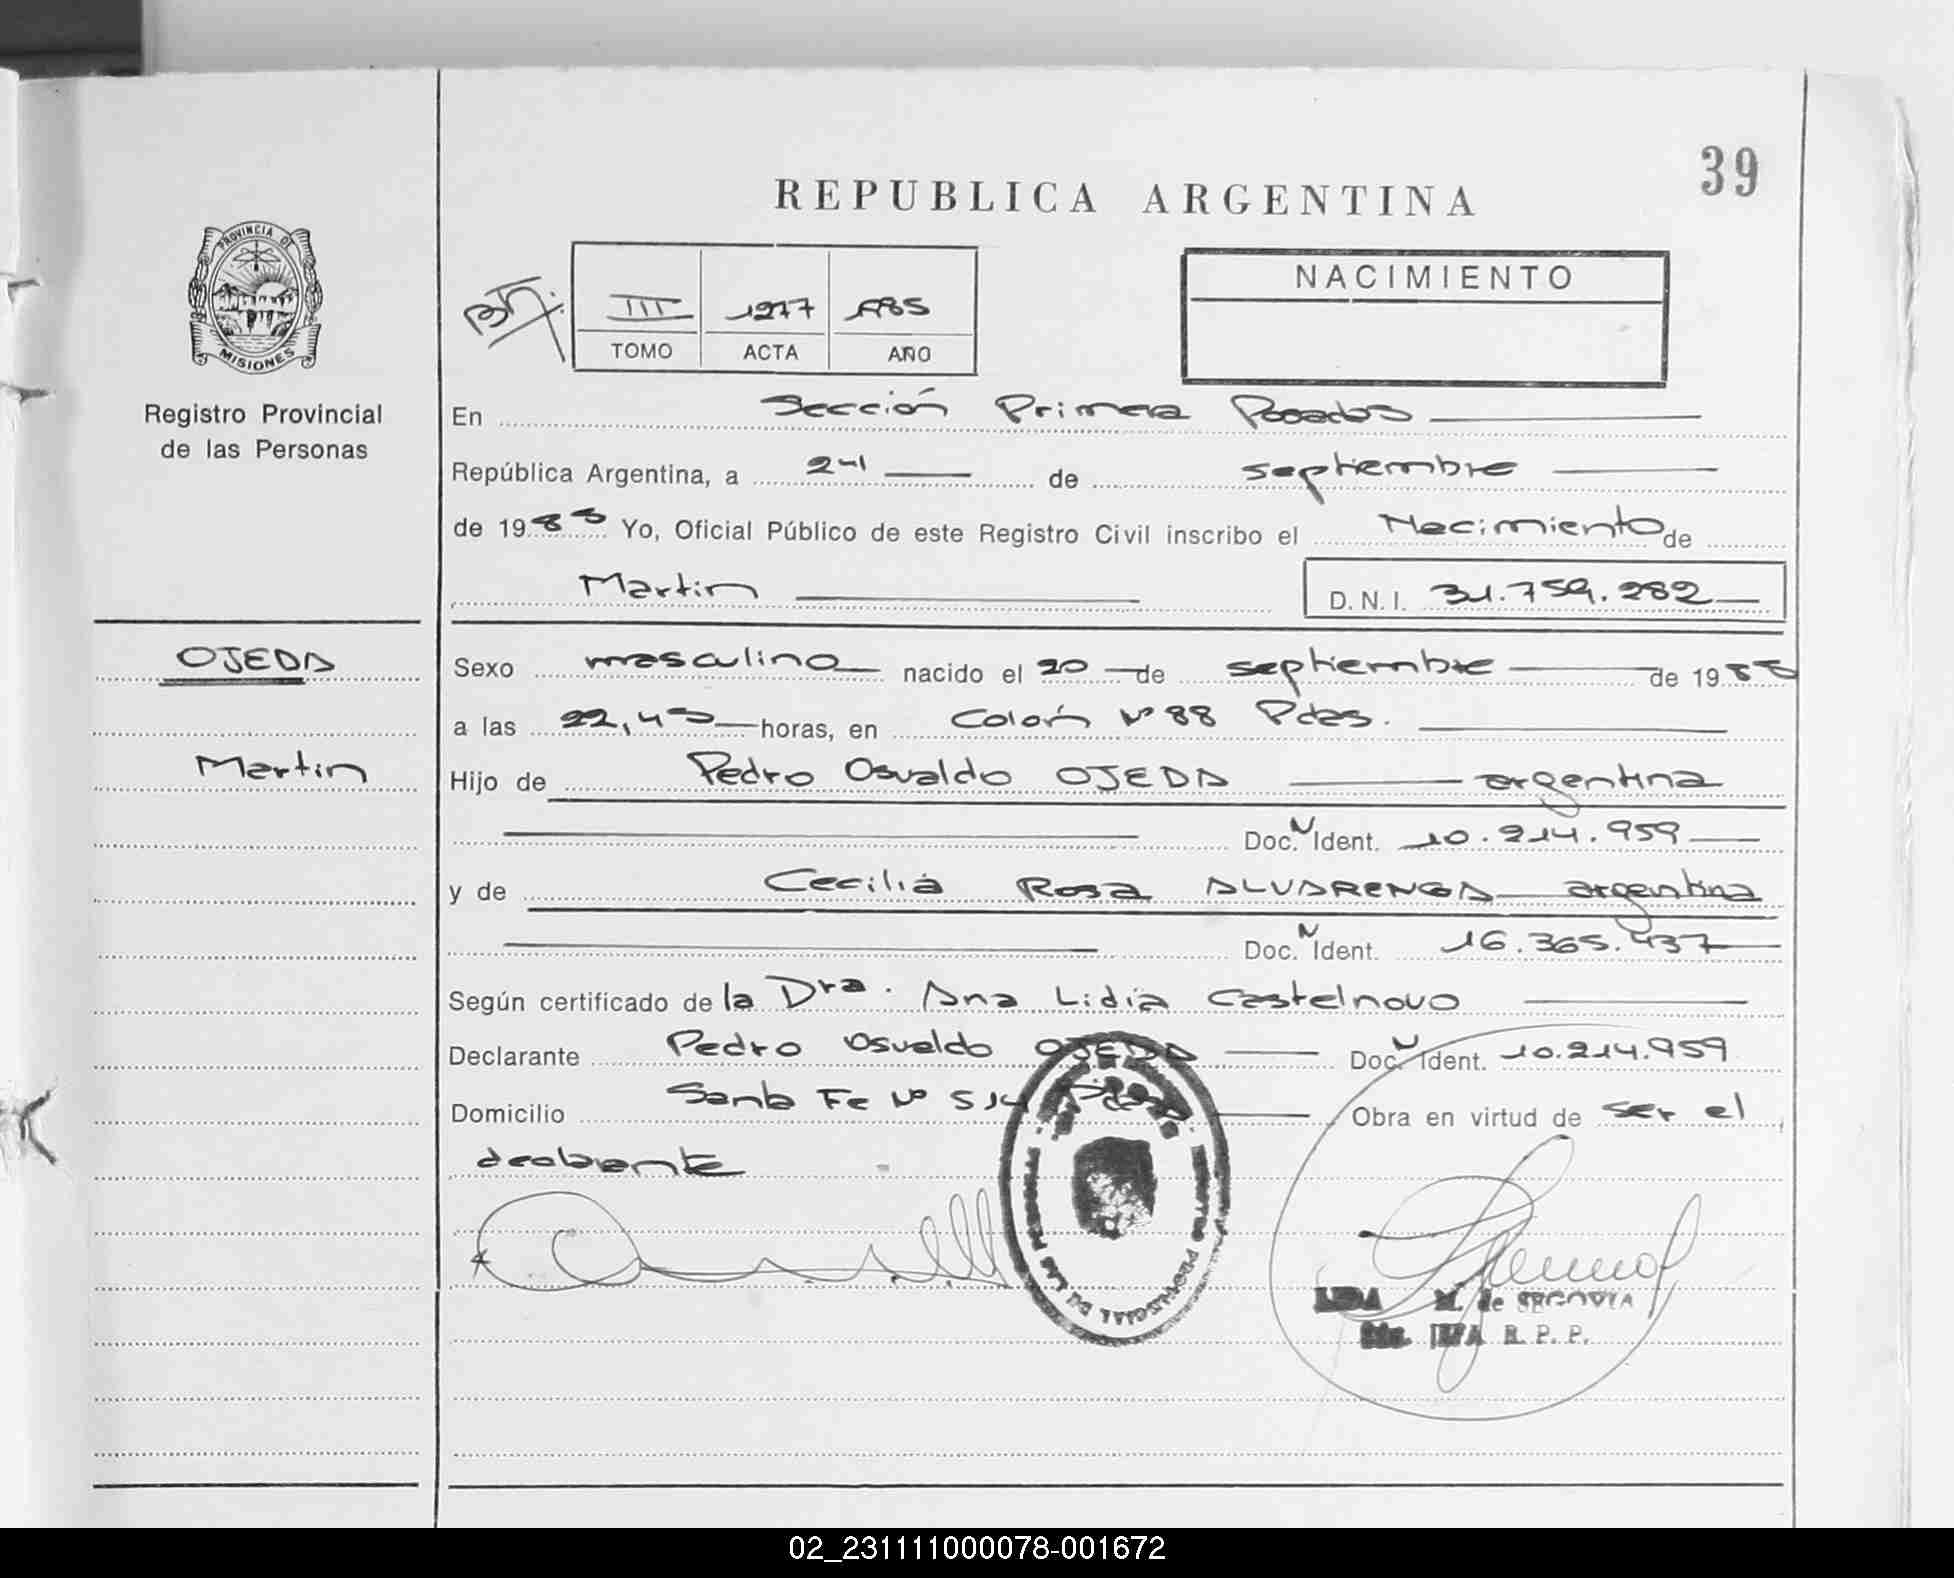 39
REPUBLICA ARGENTINA
PROVINCIA DE
MISIONES
Registro Provincial
de las Personas
III 1277 1985
TOMO ACTA AÑO
NACIMIENTO
En Sección Primera Posadas
República Argentina, a 24 de septiembre
de 1985 Yo, Oficial Público de este Registro Civil inscribo el Nacimiento de
Martin D.N.I. 31.759.282
OJEDA
Sexo masculino nacido el 20 de septiembre de 1985
a las 22,45 horas, en Colón Nº 88 Pdas.
Martin
Hijo de Pedro Osvaldo OJEDA argentina
Doc. N Ident. 10.214.959
y de Cecilia Rosa ALVARENGA argentina
Doc. N Ident. 16.365.437
Según certificado de la Dra. Ana Lidia Castelnovo
Declarante Pedro Osvaldo OJEDA Doc. N Ident. 10.214.959
Domicilio Santa Fe Nº 514 Obra en virtud de ser el
declarante
M. de SEGOVIA
R. P. P.
02_231111000078-001672